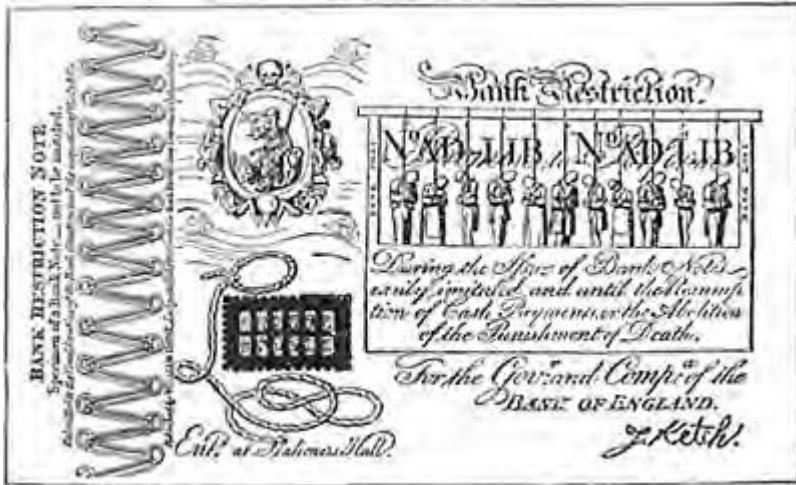 BANK RESTRICTION NOTE
Specimen of a Bank Note — not to be imitated.
Bank Restriction.
No. AD-LIB No. AD-LIB
During the Issue of Bank Notes
easily imitated, and until the Resump
tion of Cash Payments, or the Abolition
of the Punishment of Death,
For the Govr. and Compa. of the
BANK OF ENGLAND.
J. Ketch.
Ent. at Stationers Hall.